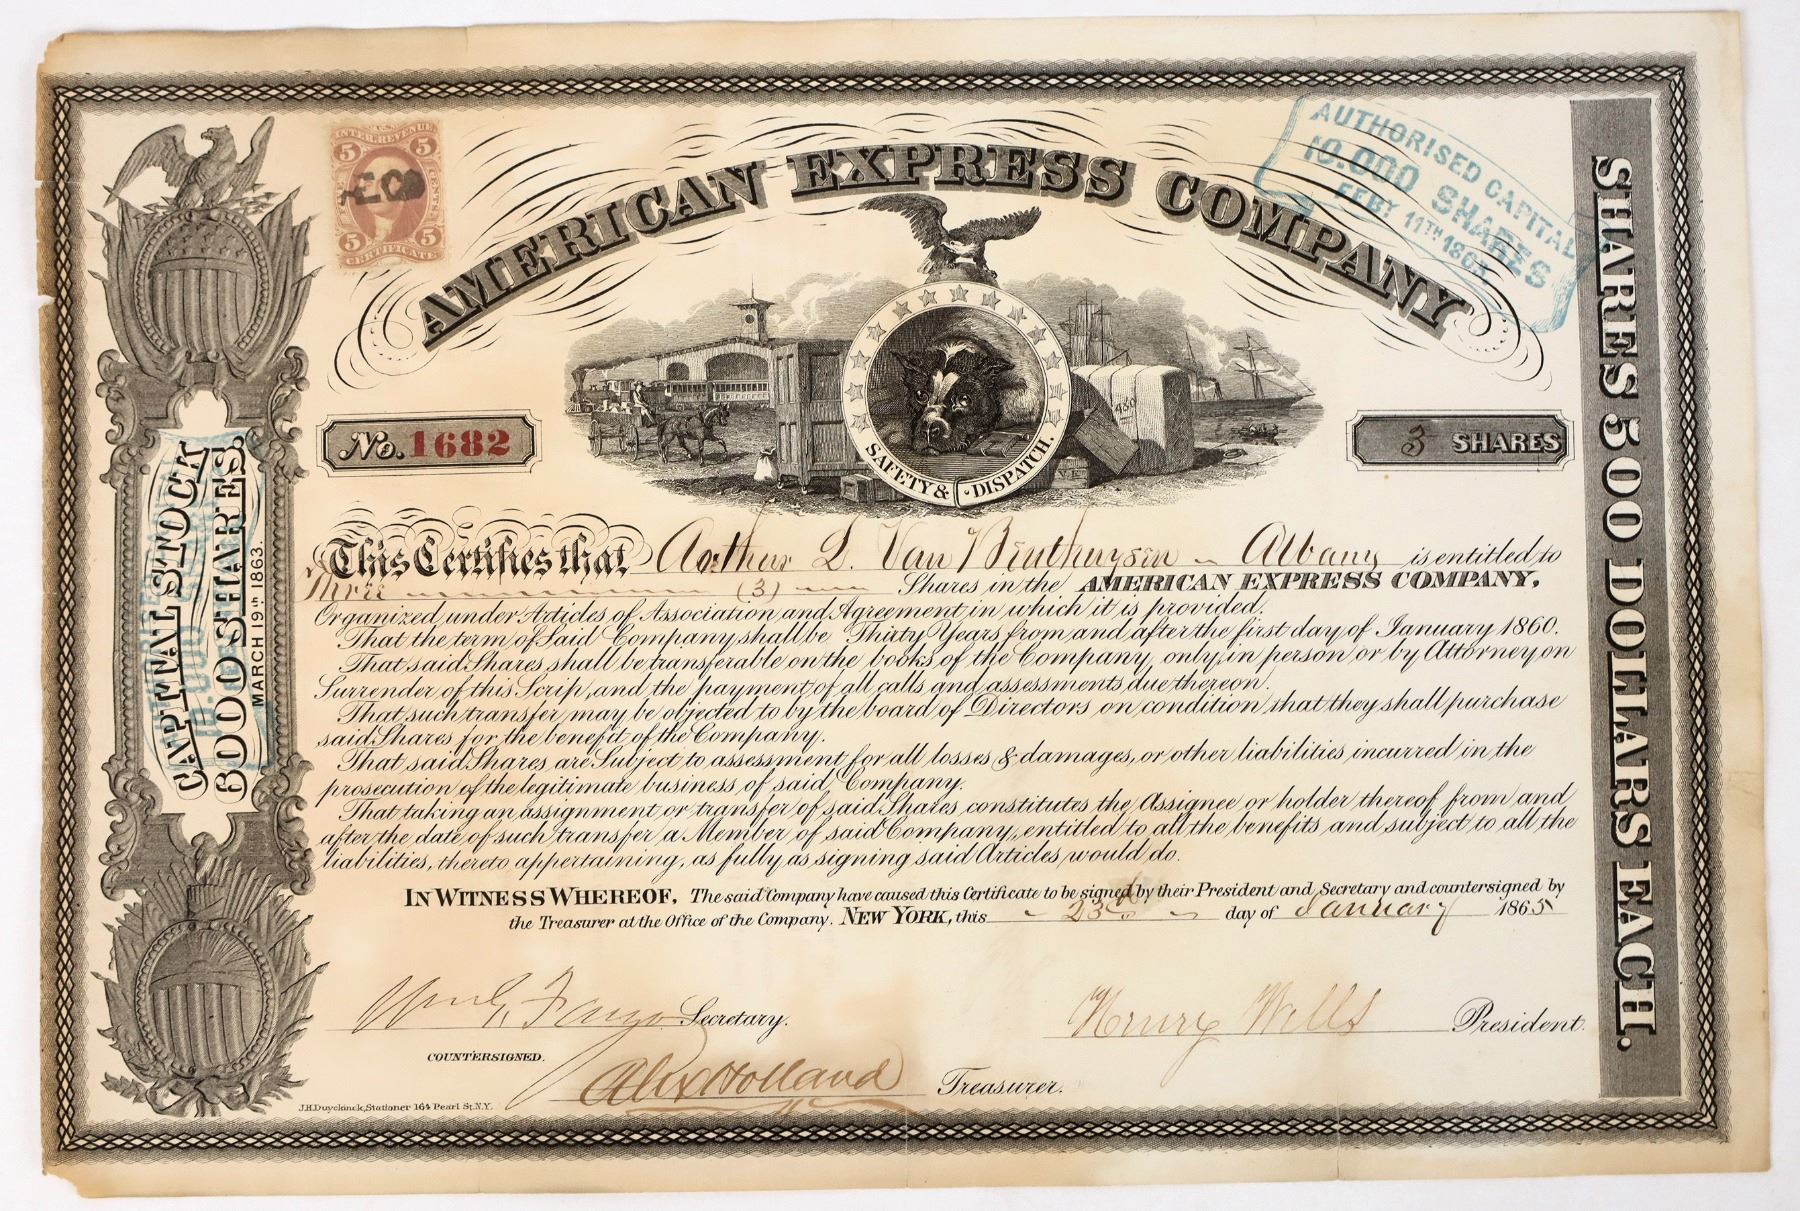 U.S.
INTER. REVENUE
5 5
FIVE CENTS
5 5
CERTIFICATE
AE Co
AMERICAN EXPRESS COMPANY
AUTHORISED CAPITAL
10.000 SHARES
FEBY 11TH 1865
No. 1682
3 SHARES
480
N.Y.
SAFETY & DISPATCH.
This Certifies that Arthur L. Van Benthuysen - Albany is entitled to
Three (3) Shares in the AMERICAN EXPRESS COMPANY,
Organized under Articles of Association and Agreement in which it is provided.
That the term of Said Company shall be Thirty Years from and after the first day of January 1860.
That said Shares shall be transferable on the books of the Company, only, in person or by Attorney on
Surrender of this Scrip, and the payment of all calls and assessments due thereon.
That such transfer may be objected to by the board of Directors on condition that they shall purchase
said Shares for the benefit of the Company.
That said Shares are Subject to assessment for all losses & damages, or other liabilities incurred in the
prosecution of the legitimate business of said Company.
That taking an assignment or transfer of said Shares constitutes the Assignee or holder thereof from and
after the date of such transfer a Member of said Company, entitled to all the benefits and subject to all the
liabilities, thereto appertaining, as fully as signing said Articles would do.
IN WITNESS WHEREOF, The said Company have caused this Certificate to be signed by their President and Secretary and countersigned by
the Treasurer at the Office of the Company. NEW YORK, this 23d day of January 1865
Wm G. Fargo Secretary.
Henry Wells President.
COUNTERSIGNED.
Alex Holland Treasurer.
J.H. Duyckinck, Stationer 164 Pearl St. N.Y.
CAPITAL STOCK
6000 SHARES.
MARCH 19th 1863.
SHARES 500 DOLLARS EACH.